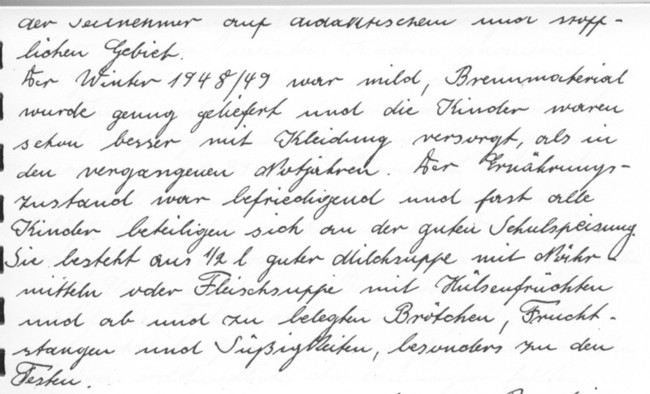 der Teilnehmer auf didaktischem und stoff-
lichen Gebiet.
Der Winter 1948/49 war mild, Brennmaterial
wurde genug geliefert und die Kinder waren
schon besser mit Kleidung versorgt, als in
den vergangenen Notjahren. Der Ernährungs-
zustand war befriedigend und fast alle
Kinder beteiligen sich an der guten Schulspeisung.
Sie besteht aus 1/2 l guter Milchsuppe mit Nähr-
mitteln oder Fleischsuppe mit Hülsenfrüchten
und ab und zu belegten Brötchen, Frucht-
stangen und Süßigkeiten, besonders zu den
Festen.